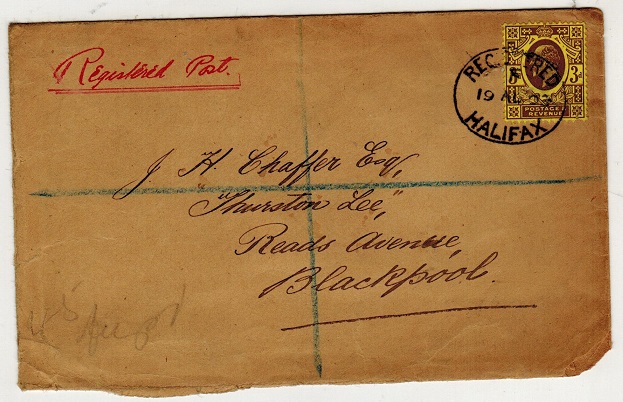 Registered Post.
3d
POSTAGE
REVENUE
REGISTERED
19 AU
HALIFAX
J. H. Chaffer Esq,
"Thurston Lee,"
Reads Avenue,
Blackpool.